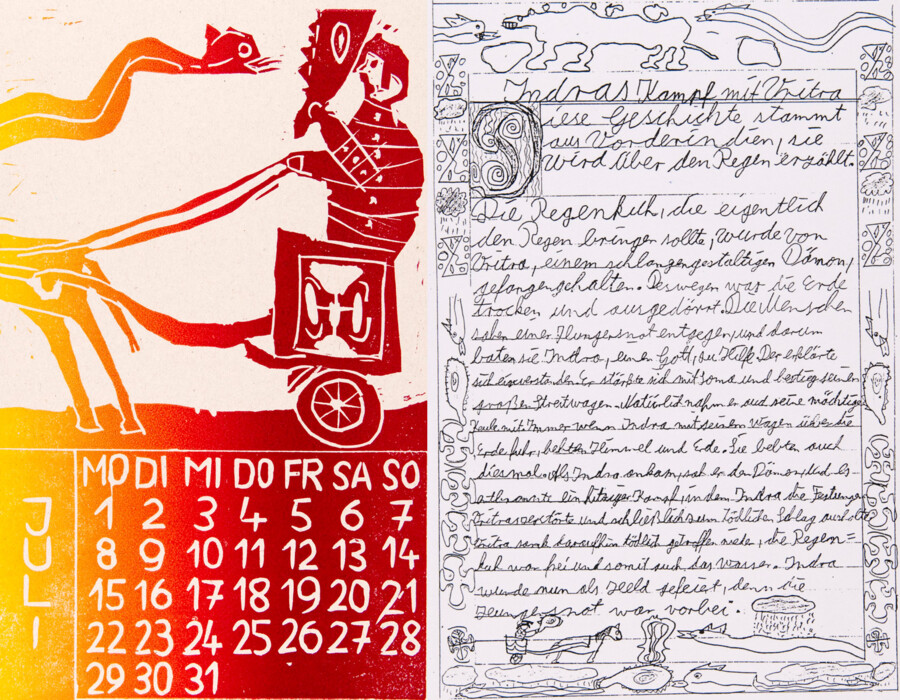 JULI
MO DI MI DO FR SA SO
1 2 3 4 5 6 7
8 9 10 11 12 13 14
15 16 17 18 19 20 21
22 23 24 25 26 27 28
29 30 31
Indras Kampf mit Vritra
Diese Geschichte stammt
aus Vorderindien, sie
wird über den Regen erzählt.
Die Regenkuh, die eigentlich
den Regen bringen sollte, wurde von
Vritra, einem schlangengestaltigen Dämon,
gefangengehalten. Deswegen war die Erde
trocken und ausgedörrt. Die Menschen
sahen einer Hungersnot entgegen, und darum
baten sie Indra, einen Gott, zu Hilfe. Der erklärte
sich einverstanden. Er stärkte sich mit Soma und bestieg seinen
großen Streitwagen. Natürlich nahm er auch seine mächtige
Keule mit. Immer wenn Indra mit seinem Wagen über die
Erde fuhr, bebten Himmel und Erde. Sie bebten auch
diesmal. Als Indra ankam, sah er den Dämon, und es
ein hitziger Kampf, in dem Indra die Festungen
Vritras zerstörte und schließlich zum tödlichen Schlag ausholte
Vritra sank daraufhin tödlich getroffen nieder, die Regen=
kuh war frei und somit auch das Wasser. Indra
wurde nun als Held gefeiert, denn die
Hungersnot war vorbei.